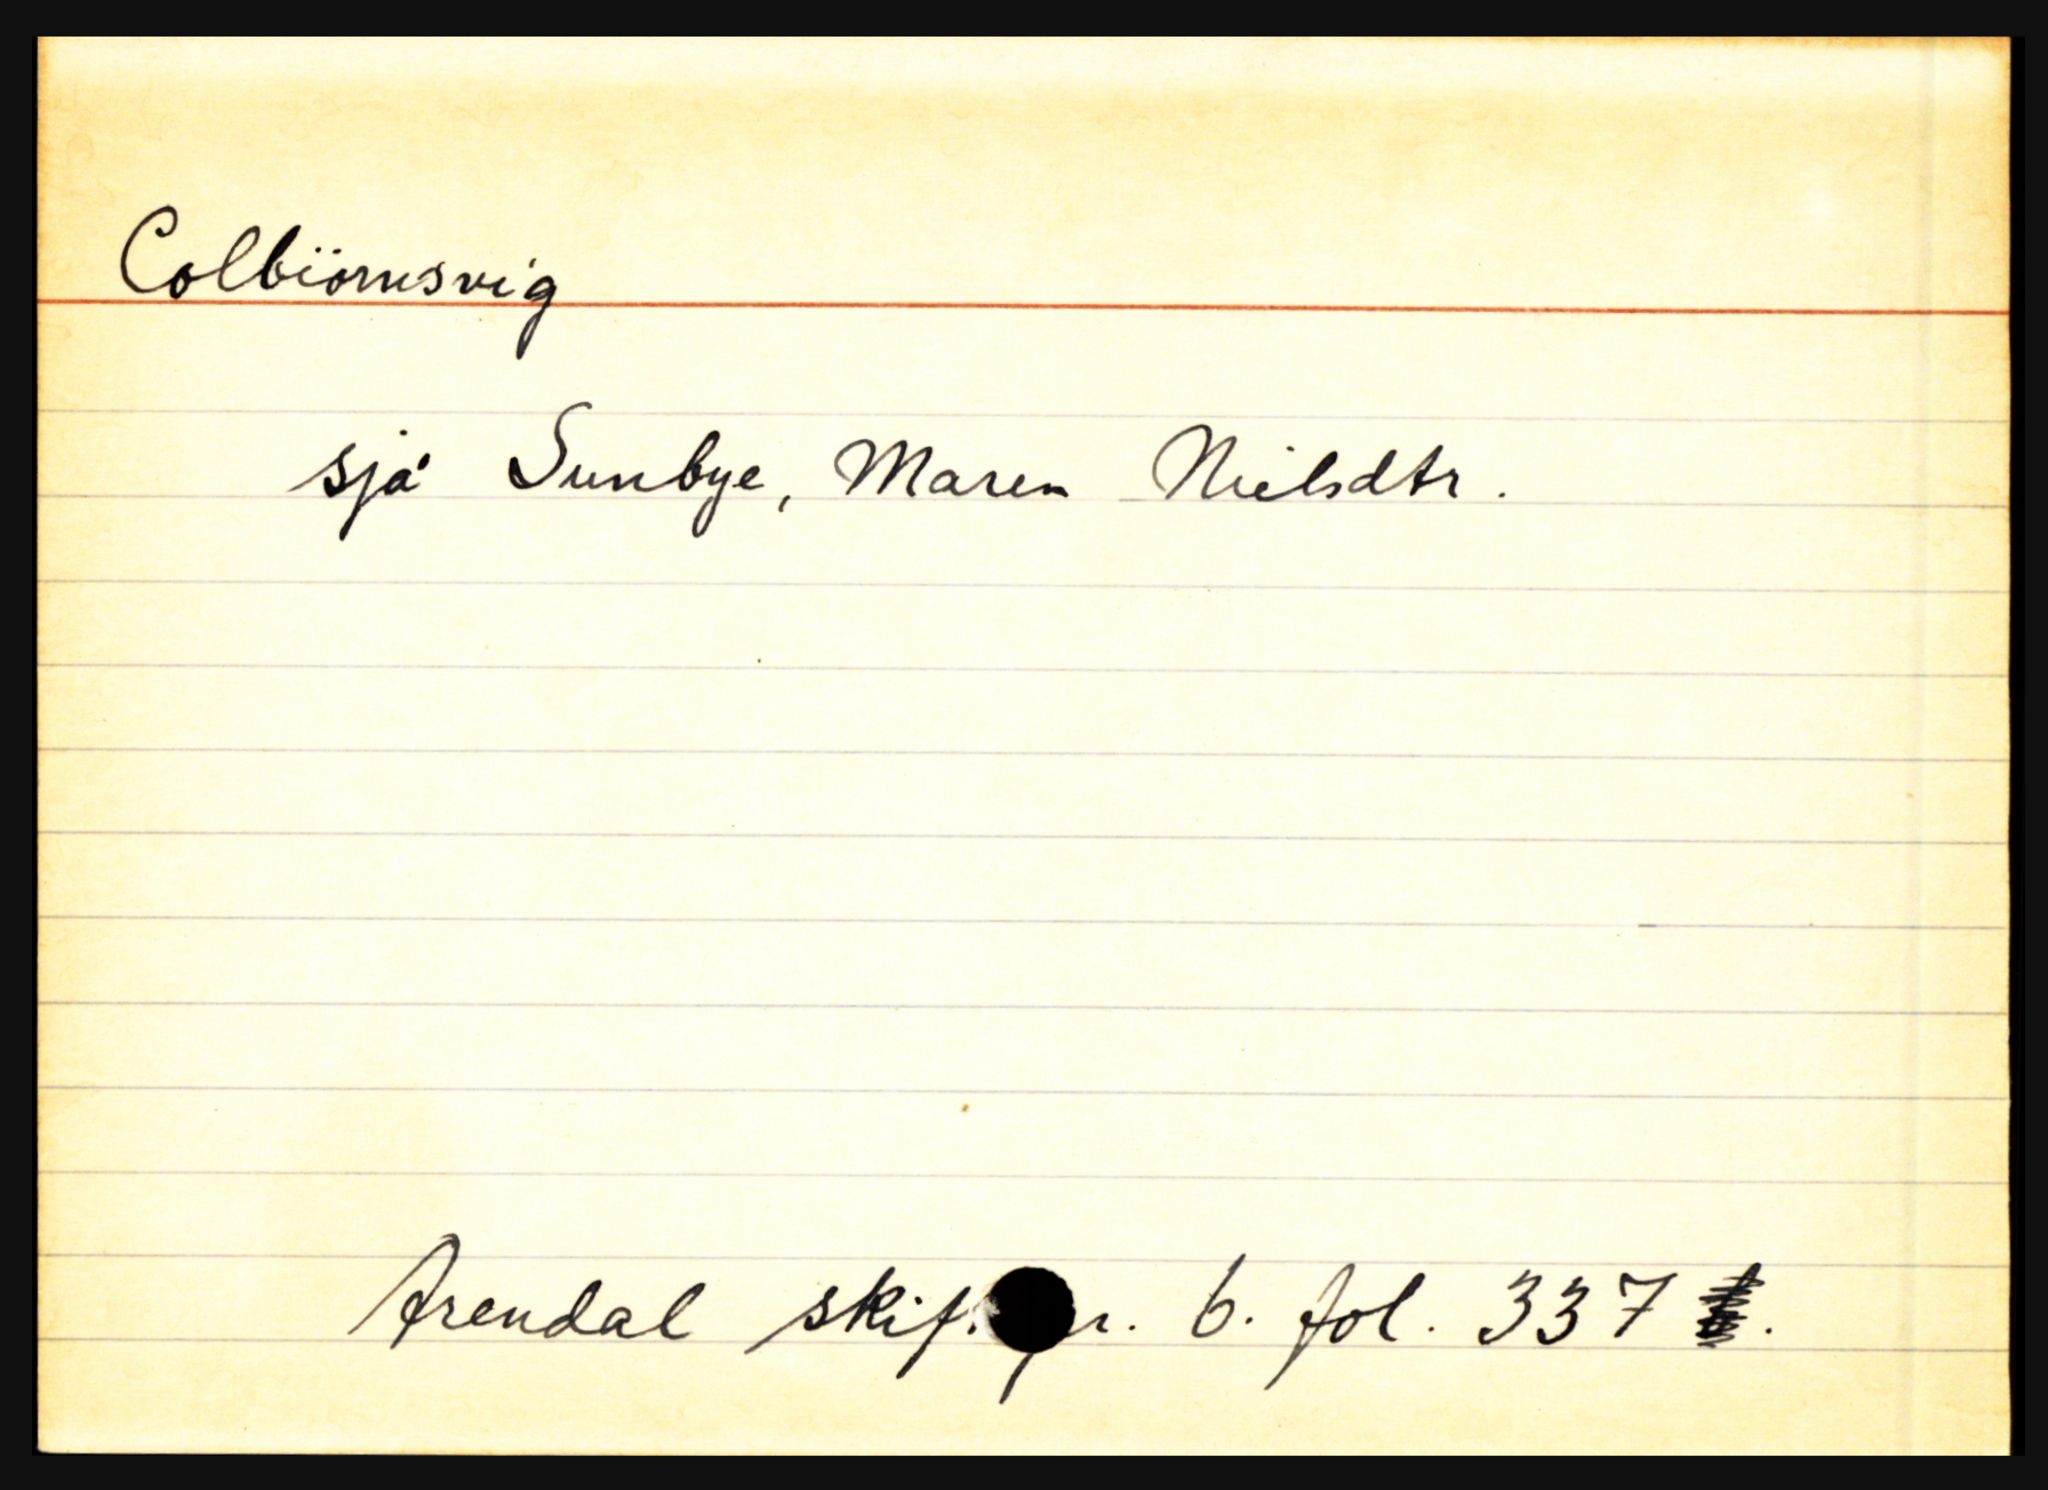 Colbiörnsvig
sjå Sunbye, Maren Nielsdtr.
Arendal skif. pr. 6. fol. 337